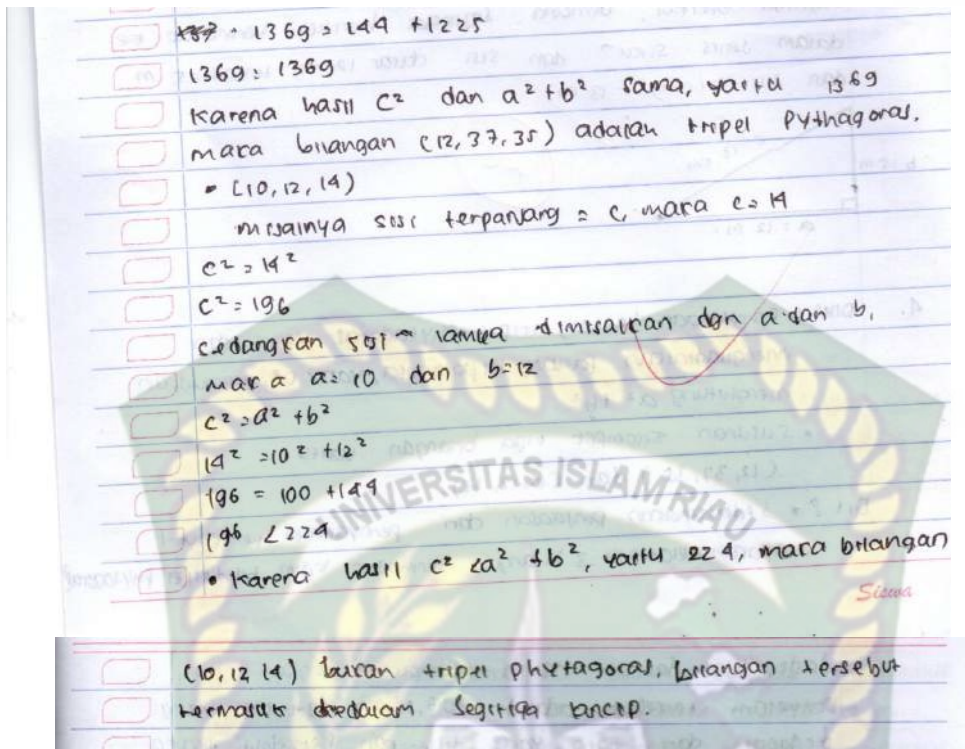 1369 = 144 + 1225
1369 = 1369
Karena hasil c² dan a² + b² sama, yaitu 1369
maka bilangan (12, 37, 35) adalah tripel Pythagoras.
• (10, 12, 14)
misalnya sisi terpanjang = c, maka c = 14
c² = 14²
c² = 196
sedangkan sisi² lainya dimisalkan dgn a dan b,
maka a = 10 dan b = 12
c² = a² + b²
14² = 10² + 12²
196 = 100 + 144
196 < 224
• Karena hasil c² < a² + b², yaitu 224, maka bilangan
Siswa
(10, 12 14) bukan tripel phytagoras. bilangan tersebut
termasuk kedalam segitiga lancip.
UNIVERSITAS ISLAM RIAU